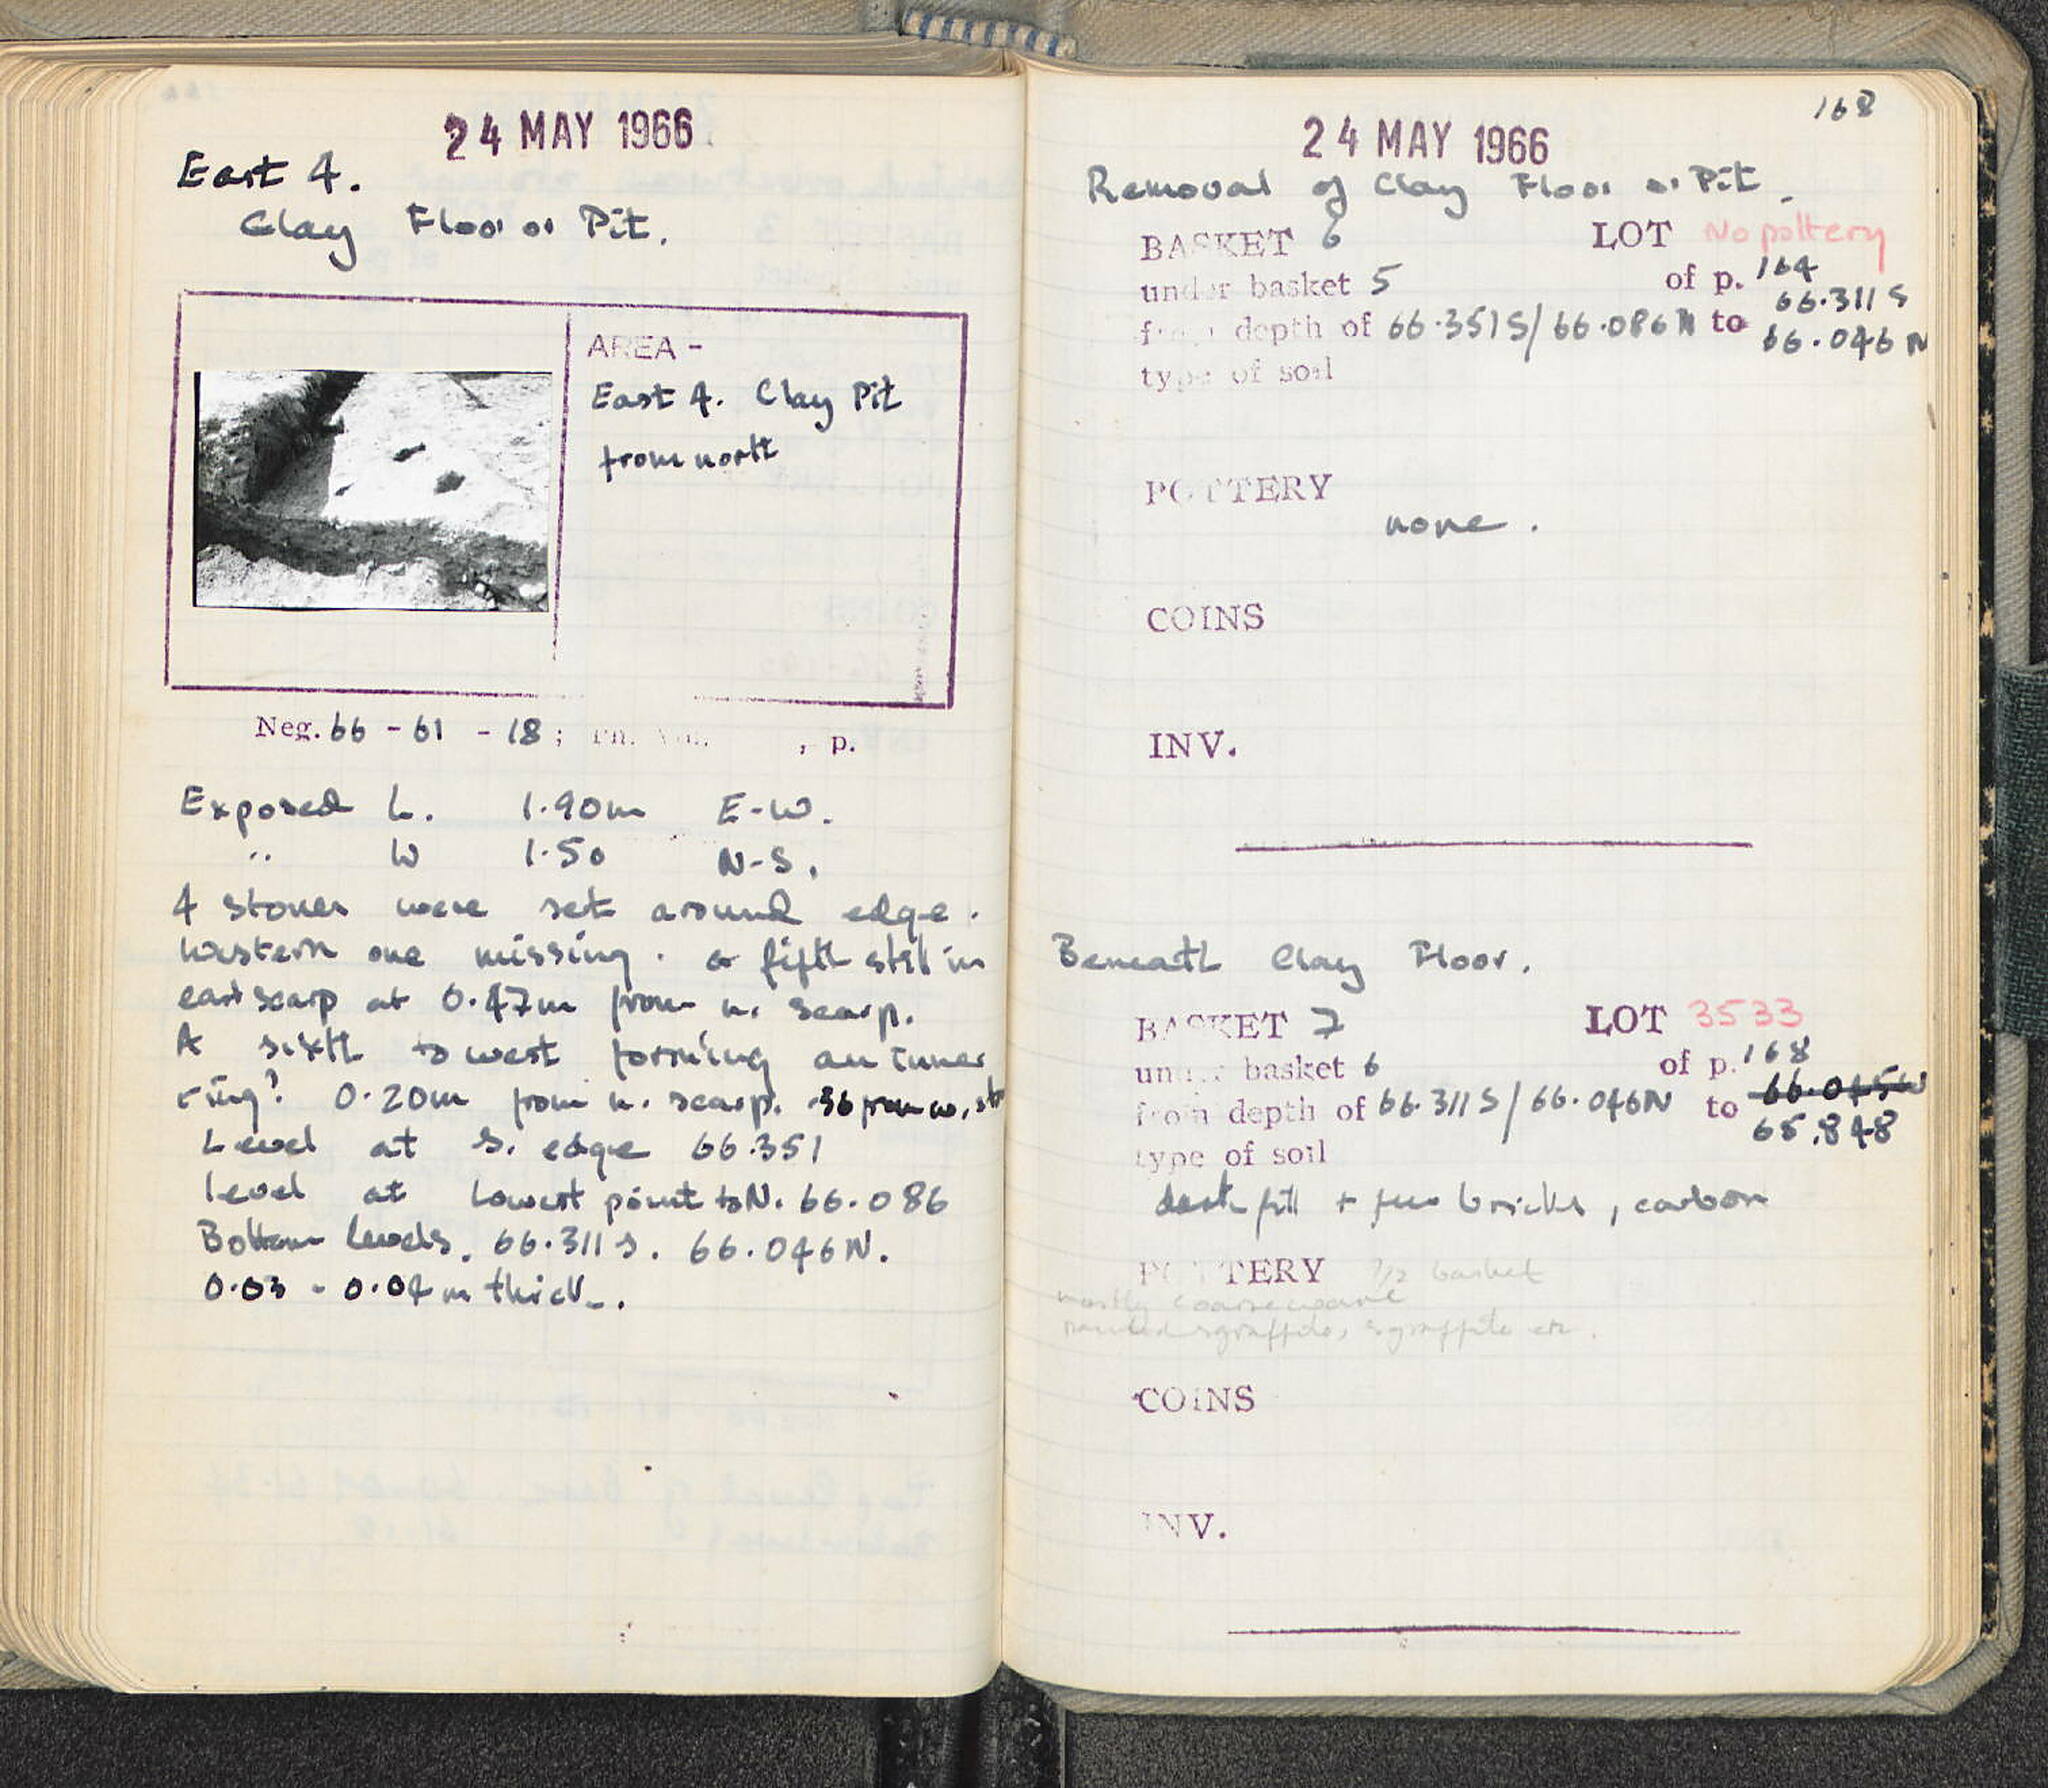 24 MAY 1966
East 4.
Clay Floor or Pit.
AREA -
East 4. Clay Pit
from north
Neg. 66 - 61 - 18 ; Ph. Vol. , p.
Exposed L. 1.90m E-W.
" W 1.50 N-S.
4 stones were set around edge.
Western one missing. a fifth still in
east scarp at 0.47m from n. scarp.
A sixth to west forming an inner
ring? 0.20m from n. scarp. .36 from w.
Level at S. edge 66.351
level at lowest point to N. 66.086
Bottom levels. 66.311 S. 66.046 N.
0.03 - 0.04 m thick.
168
24 MAY 1966
Removal of Clay Floor or Pit.
BASKET 6 LOT No pottery
under basket 5 of p. 164
from depth of 66.351 S/66.086 N to 66.311 S
66.046 N
type of soil
POTTERY
none.
COINS
INV.
Beneath Clay Floor.
BASKET 7 LOT 3533
under basket 6 of p. 168
from depth of 66.311 S/66.046 N to
65.848
type of soil
fill + few bricks, carbon
POTTERY 1/2 basket
mostly coarseware
sgraffito, sgraffito etc.
COINS
INV.